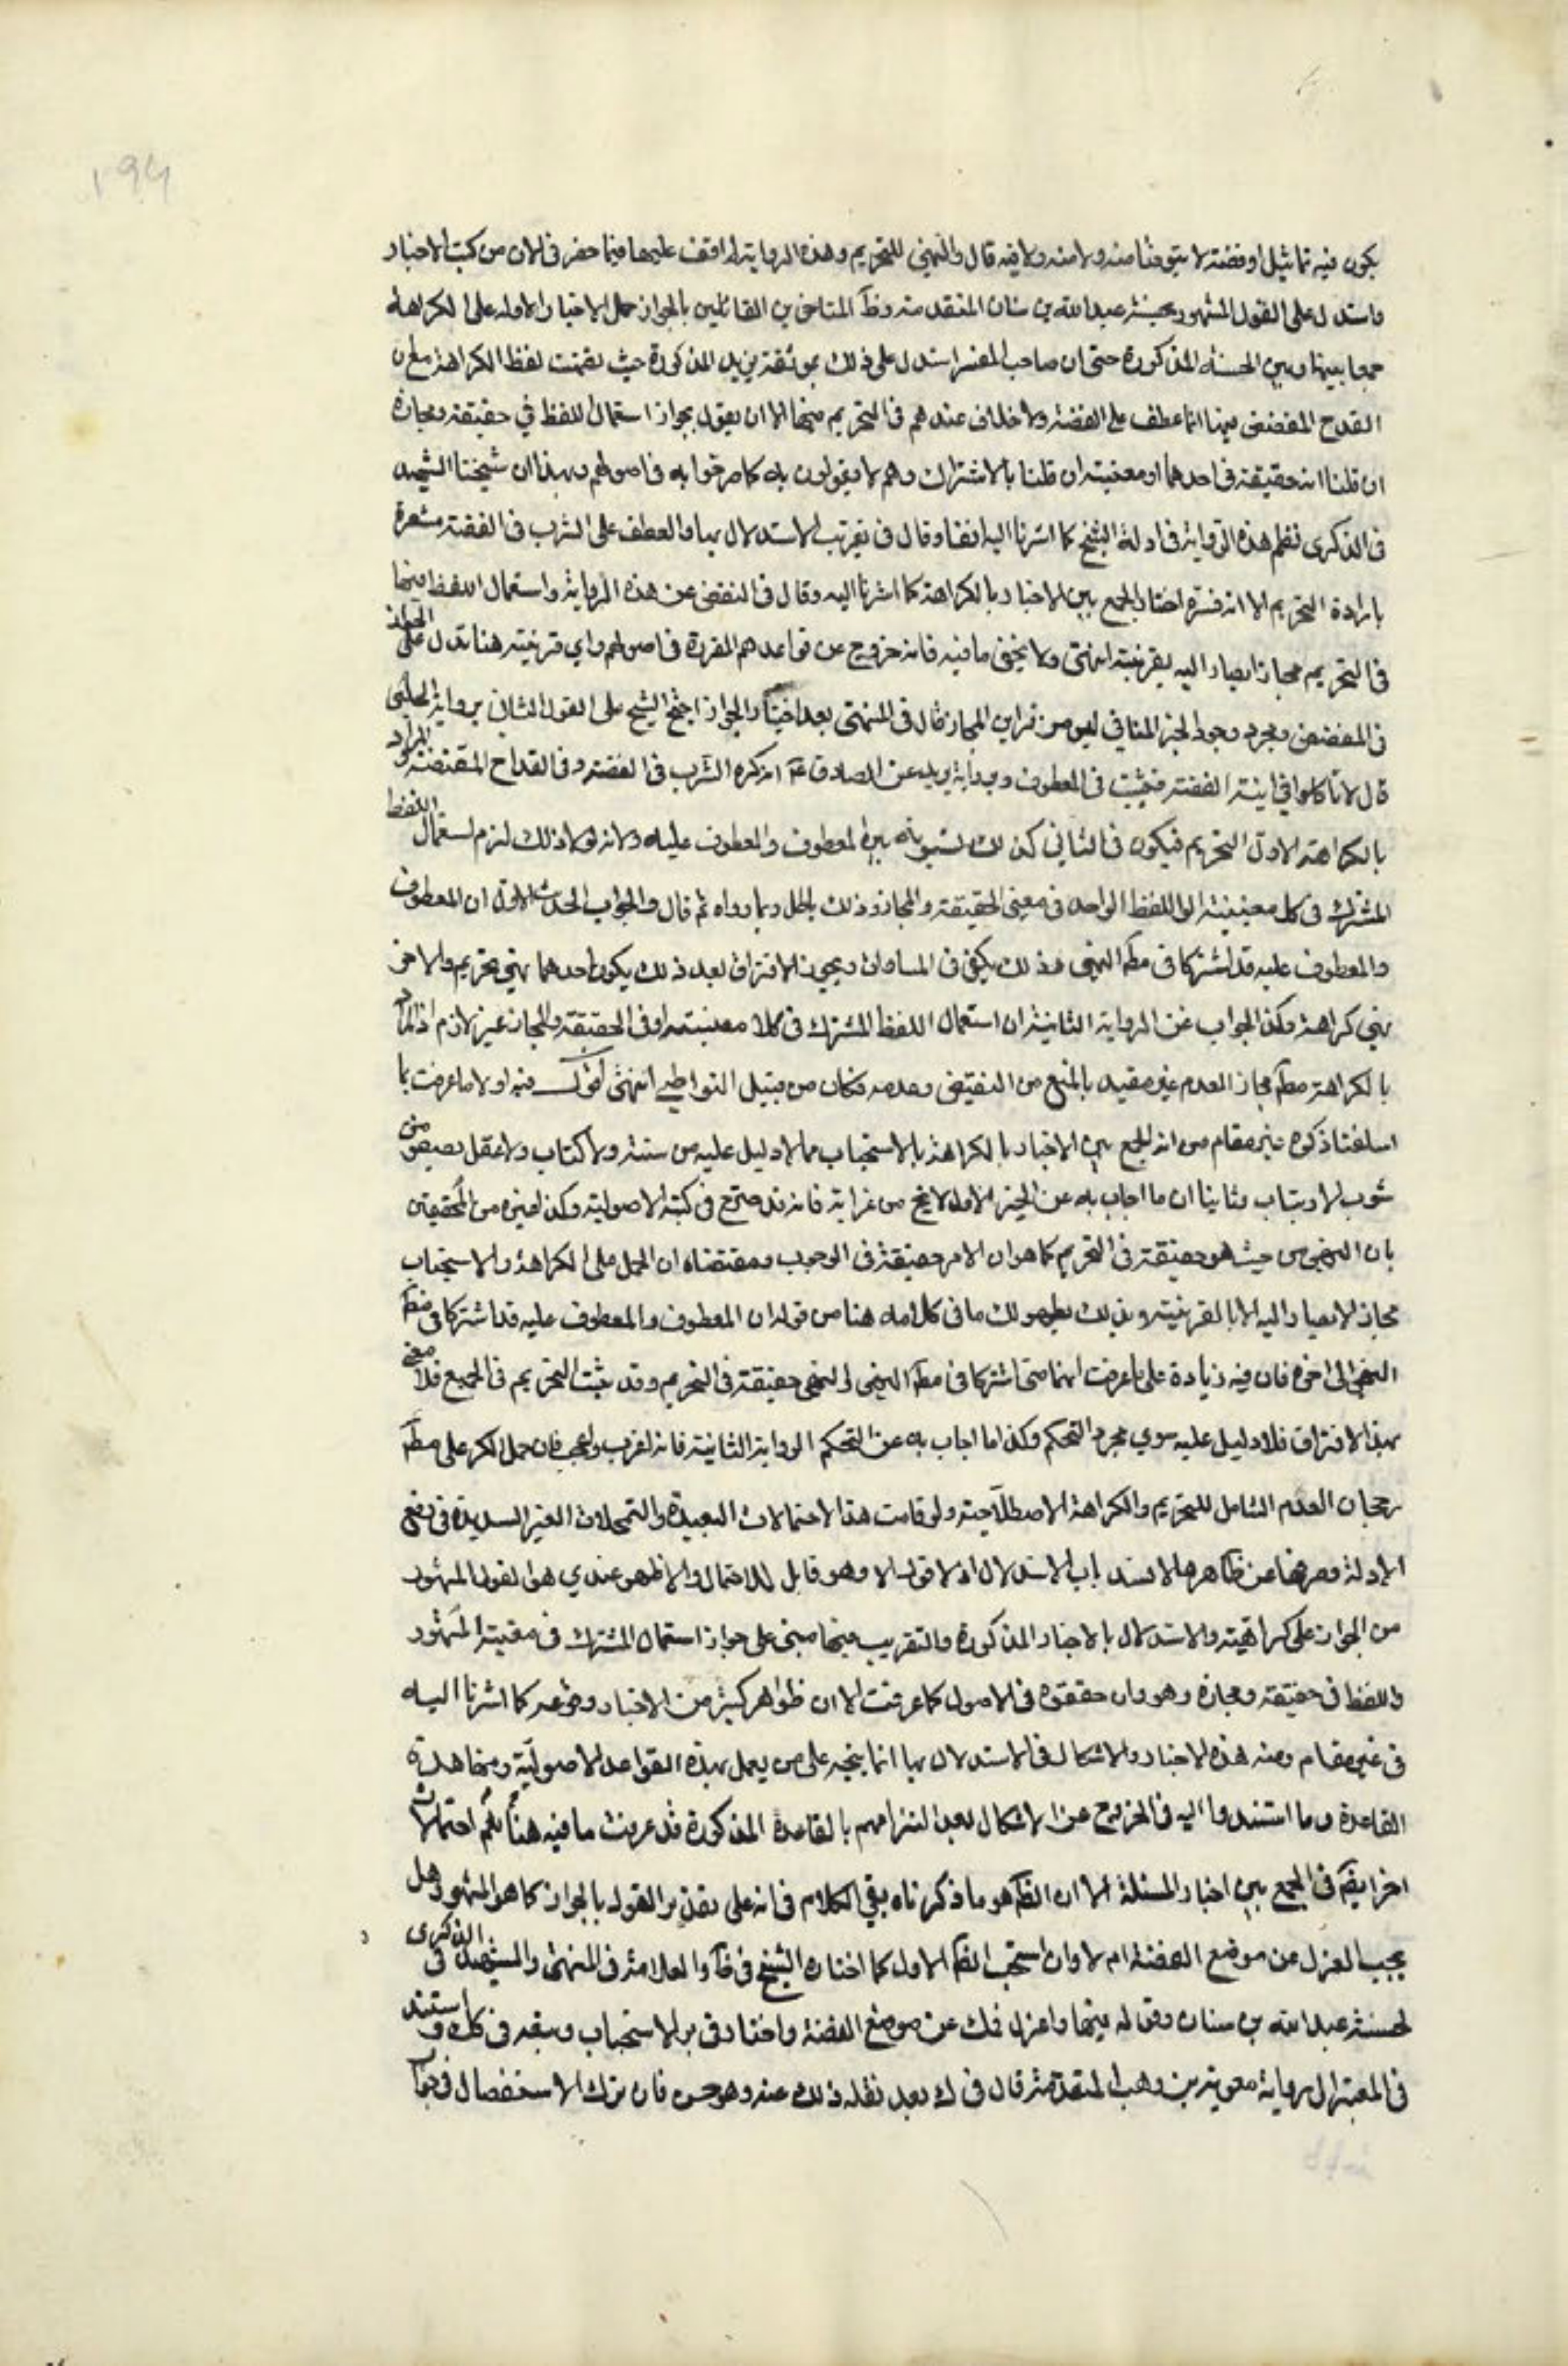 ١٩٤
يكون فيه تماثيل او فضة لا يتوضأ منه ولا منه ولا فيه قال والنهي للتحريم وهذه الرواية لم اقف عليها فيما حضر في الان من كتب الاخبار
واستدل على القول المشهور بحسنة عبد الله بن سنان المتقدمة وظ المتاخرين القائلين بالجواز حمل الاخبار الاوله على الكراهة
جمعا بينها وبين الحسنة المذكورة حتى ان صاحب المعتبر استدل على ذلك بموثقة بريد المذكورة حيث تضمنت لفظ الكراهة مع ان
القدح المفضض فيها انما عطف على الفضة ولا خلاف عندهم في التحريم فيها الا ان يقول بجواز استعمال اللفظ في حقيقته ومجازه
ان قلنا انه حقيقة في احدهما او معنييه ان قلنا بالاشتراك وهم لا يقولون به كما صرحوا به في اصولهم وبهذا ان شيخنا الشهيد
في الذكرى نظم هذه الرواية في ادلة الشيخ كما اشرنا اليه انفا وقال في تقريب الاستدلال بها والعطف على الشرب في الفضة مشعرة
بارادة التحريم الا انه قده اختار الجمع بين الاخبار بالكراهة كما اشرنا اليه وقال في التفصي عن هذه الرواية واستعمال اللفظ فيها
في التحريم مجازا يصار اليه بقرينة انتهى ولا يخفى ما فيه فانه خروج عن قواعدهم المقررة في اصولهم واي قرينة هنا تدل على الجواز
في المفضض ومجرد وجود الخبر المنافي ليس من قراين المجاز قال في المنتهى بعد اختيار الجواز احتج الشيخ على القول الثاني برواية الحلبي
قال لا تاكلوا في انية الفضة فيثبت في المعطوف وبرواية بريد عن الصادق ع انه كره الشرب في الفضة وفي القداح المفضضة والمراد
بالكراهة الاول التحريم فيكون في الثاني كذلك تسوية بين المعطوف والمعطوف عليه ولانه لولا ذلك لزم استعمال اللفظ
المشترك في كل معنييه او اللفظ الواحد في معنى الحقيقة والمجاز وذلك باطل وبما رواه ثم قال والجواب الحديث الاول ان المعطوف
والمعطوف عليه قد اشتركا في مطلق النهي وذلك يكفي في المساواة ويجوز الافتراق بعد ذلك بكون احدهما نهي تحريم والاخر
نهي كراهة وكذا الجواب عن الرواية الثانية ان استعمال اللفظ المشترك في كلا معنييه او في الحقيقة والمجاز غير لازم اذ المراد
بالكراهة مطلق رجحان العدم غير مقيد بالمنع من النقيض وعدمه فكان من قبيل التواطي انتهى اقول فيه اولا ما عرفت بما
اسلفنا ذكره غير مقام من ان الجمع بين الاخبار بالكراهة بالاستحباب مما لا دليل عليه من سنة ولا كتاب ولا عقل يصفو من
شوب الارتياب وثانيا ان ما اجاب به عن الخبر الاول لا يخ من غرابة فانه قد صرح في كتبه الاصولية وكذا غيره من المحققين
بان النهي من حيث هو حقيقة في التحريم كما هو ان الامر حقيقة في الوجوب ومقتضاه ان الحمل على الكراهة والاستحباب
مجاز لا يصار اليه الا بالقرينة وبذلك يظهر لك ما في كلامه هنا من قوله ان المعطوف والمعطوف عليه قد اشتركا في مطلق
النهي الى اخره فان فيه زيادة على ما عرفت انهما متى اشتركا في مطلق النهي والنهي حقيقة في التحريم وقد ثبت التحريم في الجميع فلا معنى
بهذا الافتراق فلا دليل عليه سوى مجرد التحكم وكذا ما اجاب به عن التحكم الرواية الثانية فانه اغرب واعجب فان حمل الكره على مطلق
رجحان العدم الشامل للتحريم والكراهة الاصطلاحية ولو قامت هذا الاحتمالات البعيدة والتمحلات الغير السديدة في دفع
الادلة وصرفها عن ظاهرها لانسد باب الاستدلال اذ لا قول الا وهو قابل للاحتمال والاظهر عندي هو القول المشهور
من الجواز على كراهية والاستدلال بالاخبار المذكورة والتقريب فيها مبني على جواز استعمال المشترك في معنييه المشهور
واللفظ في حقيقته ومجازه وهو وان حققوه في الاصول كما عرفت الا ان ظواهر كثير من الاخبار وقوعه كما اشرنا اليه
في غير مقام ومنه هذه الاخبار والاشكال في الاستدلال بها انما يتجه على من يعمل بهذه القواعد الاصولية ومنها هذه
القاعدة وما استندوا اليه في الخروج عن الاشكال بعد التزامهم بالقاعدة المذكورة قد عرفت ما فيه هنا ثم احتمالات
اخر ايضا في الجمع بين اخبار المسئلة الا ان الظ هو ما ذكرناه بقي الكلام في انه على تقدير القول بالجواز كما هو المشهور هل
يجب العزل عن موضع الفضة ام لا وان استحب الظ الاول كما اختاره الشيخ في ط والعلامة في المنتهى والشهيد في الذكرى
لحسنة عبد الله بن سنان وقوله فيها واعزل فمك عن موضع الفضة واختار في بر الاستحباب وسبقه في ذلك واستند
في المعتبر الى رواية معوية بن وهب المتقدمة قال في ك بعد نقله ذلك عنه وهو حسن فان ترك الاستفصال في جواب